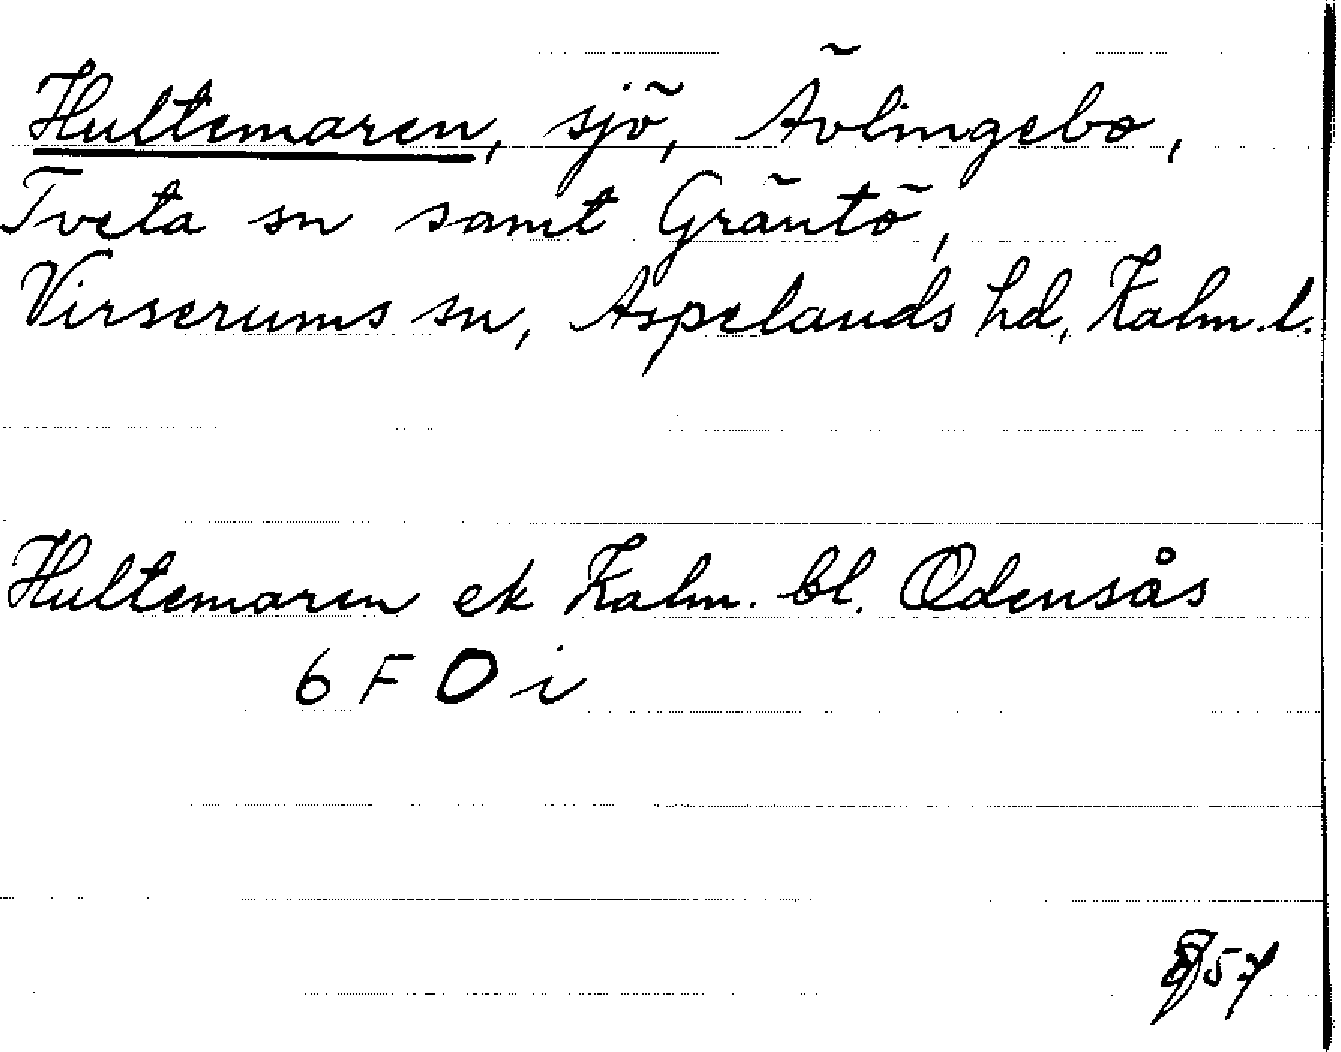 Hultemaren, sjö, Ävlingebo,
Tveta sn samt Gräntö,
Virserums sn, Aspelands hd, Kalm. l.
Hultemaren ek Kalm. bl. Ödensås
6 F 0 i
57